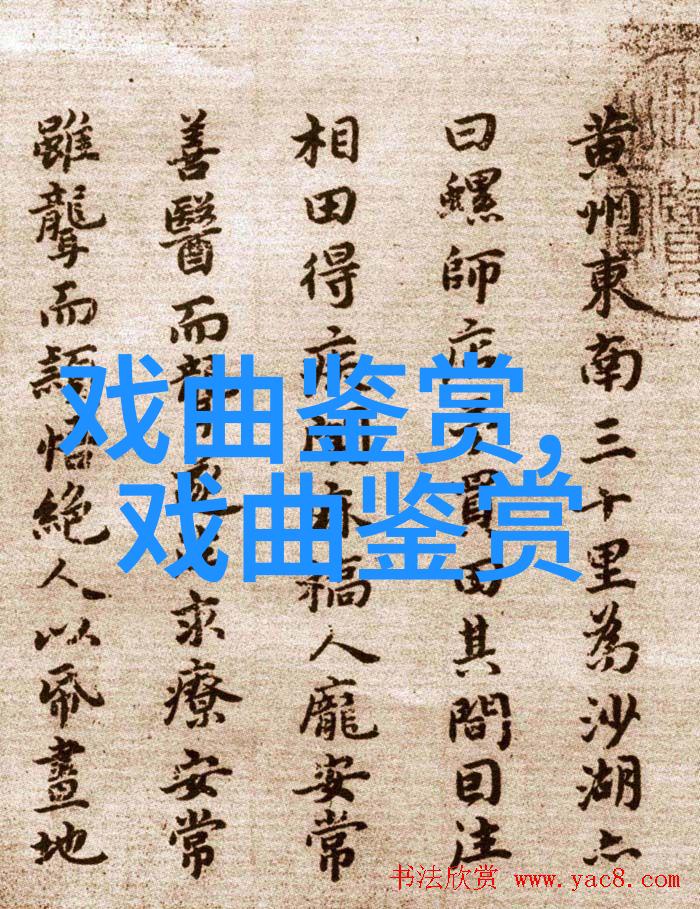 黄州東南三十里為沙湖亦
曰螺師店予買田其間因往
相田得疾聞麻橋人龐安常
善醫而聾遂往求療安常
雖聾而穎悟絶人以紙畫地
戏曲鉴赏,
戏曲鉴赏
书法欣赏 www.yac8.com